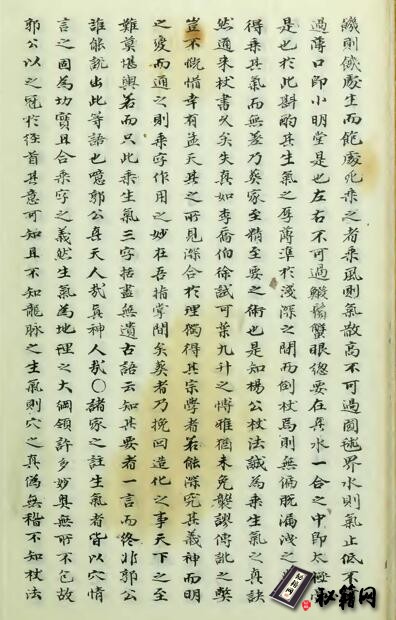 饑則餓廢生而飽廢死乘之者乘風則氣散高不可過圓毬界水則氣止低不可
過薄口即小明堂是也左右不可過鰕鬚蟹眼總要在真水一合之中即太極
是也於此斟酌其生氣之厚薄準於淺深之間而倒杖焉則無偏脫漏洩之
得乘其氣而無差乃葬家至精至要之術也是知楊公杖法誠為乘生氣之真訣
然通朱杖書久矣失真如李喬伯徐試可葉九升之博雅猶未免襲謬傳訛之弊
豈不慨惜幸有孟天其之所見深合於理獨得其宗學者若能深究其義神而明
之變而通之則乘字作用之妙在吾指掌間矣葬者乃挽回造化之事天下之至
難莫堪輿若而只此乘生氣三字括盡無遺古語云知其要者一言而終非郭公
誰能說出此等語也噫郭公真天人哉真神人哉○諸家之註生氣者皆以穴情
言之固為切實且合乘字之義然生氣為地理之大綱領許多妙奧無所不包故
郭公以之冠於徑首其意可知且不知龍脉之生氣則穴之真偽無稽不知杖法
秘籍网